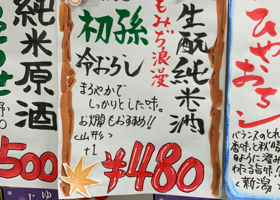 生酛純米酒
もみぢ浪漫
初孫
冷おろし
まろやかで
しっかりとした味。
お燗もおすすめ!!
<山形>
+1
¥480
純米原酒
500
ひやおろし
バランスのとれた
香味と
<新潟>